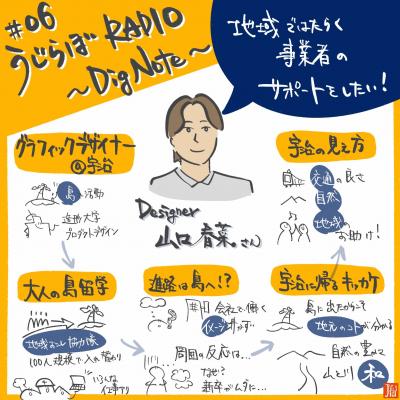 #06
うじらぼRADIO
～Dig Note～
地域ではたらく
事業者の
サポートをしたい!
グラフィックデザイナー
@宇治
島で活動
造形大学
プロダクトデザイン
Designer
山口 春菜さん
宇治の見え方
交通の良さ
自然
地域の
お助け!
大人の島留学
地域おこし協力隊
100人規模で人の繋がり
いろんな
仕事アリ
進路は島へ!?
会社で働く
イメージ付かず…
周囲の反応は…
なぜ?
新卒がムダに…
宇治に帰るキッカケ
島に出たからこそ
地元のコトが分かる
自然の豊かさ
山と川
和